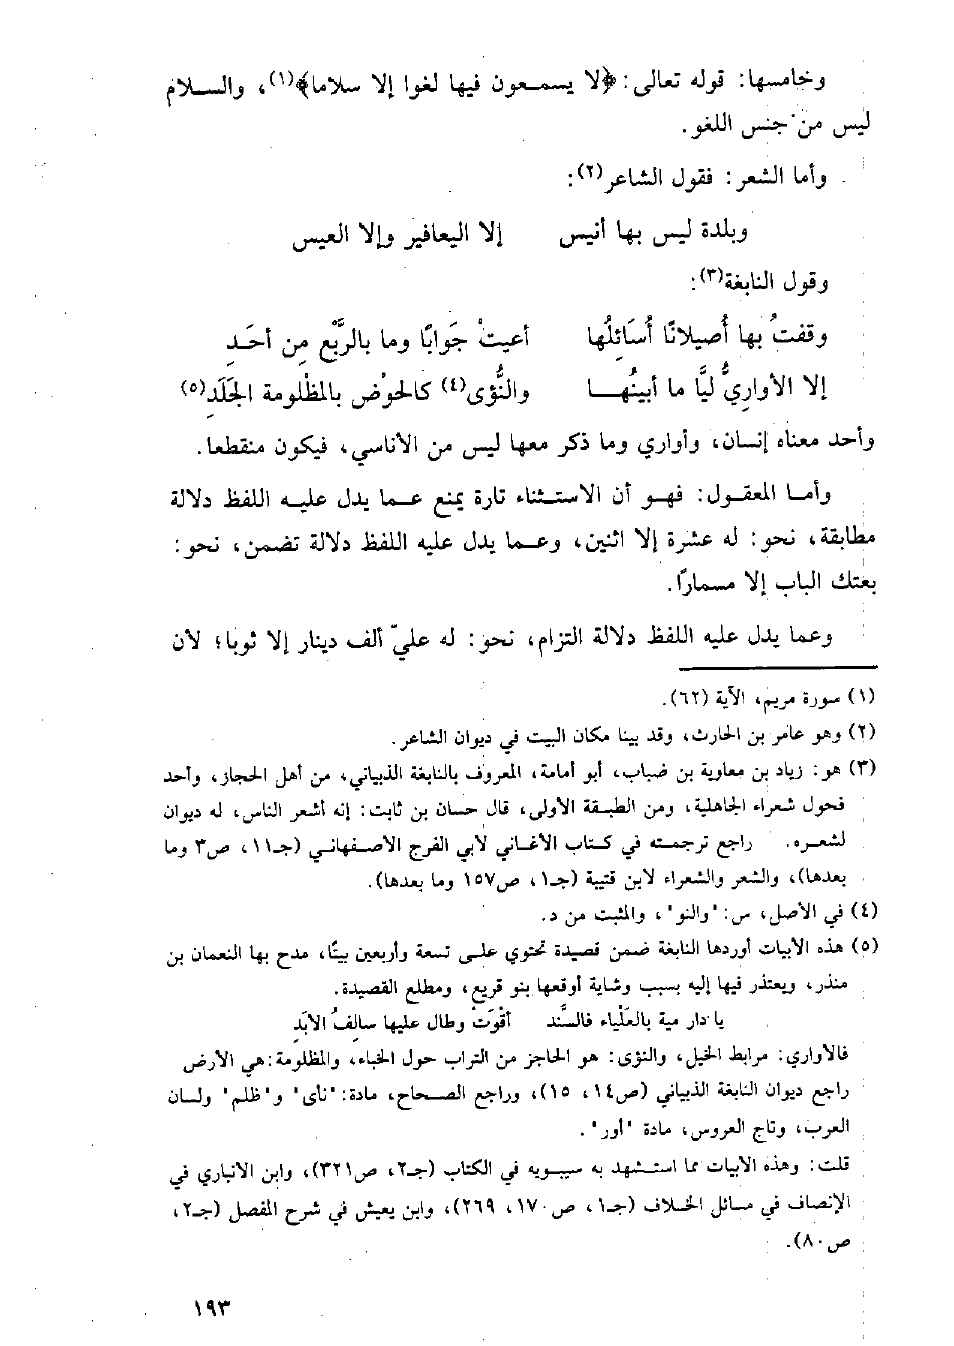 وخامسها: قوله تعالى: ﴿لا يسمعون فيها لغوا إلا سلاما﴾(١)، والسلام
ليس من جنس اللغو.
وأما الشعر: فقول الشاعر(٢):
وبلدة ليس بها أنيس    إلا اليعافير وإلا العيس
وقول النابغة(٣):
وقفتُ بها أُصيلانًا أُسَائِلُها    أعيتْ جَوابًا وما بالرَّبْعِ مِن أحَدِ
إلا الأواريُّ ليًّا ما أبينُهـا    والنُّؤى(٤) كالحوْض بالمظْلومة الجَلَدِ(٥)
وأحد معناه إنسان، وأواري وما ذكر معها ليس من الأناسي، فيكون منقطعا.
وأما المعقول: فهو أن الاستثناء تارة يمنع عما يدل عليه اللفظ دلالة
مطابقة، نحو: له عشرة إلا اثنين، وعما يدل عليه اللفظ دلالة تضمن، نحو:
بعتك الباب إلا مسمارًا.
وعما يدل عليه اللفظ دلالة التزام، نحو: له عليّ ألف دينار إلا ثوبا؛ لأن
(١) سورة مريم، الآية (٦٢).
(٢) وهو عامر بن الحارث، وقد بينا مكان البيت في ديوان الشاعر.
(٣) هو: زياد بن معاوية بن ضباب، أبو أمامة، المعروف بالنابغة الذبياني، من أهل الحجاز، وأحد
فحول شعراء الجاهلية، ومن الطبقة الأولى، قال حسان بن ثابت: إنه أشعر الناس، له ديوان
لشعره. راجع ترجمته في كتاب الأغاني لأبي الفرج الأصفهاني (جـ١١، ص٣ وما
بعدها)، والشعر والشعراء لابن قتيبة (جـ١، ص١٥٧ وما بعدها).
(٤) في الأصل، س: "والنو"، والمثبت من د.
(٥) هذه الأبيات أوردها النابغة ضمن قصيدة تحتوي على تسعة وأربعين بيتًا، مدح بها النعمان بن
منذر، ويعتذر فيها إليه بسبب وشاية أوقعها بنو قريع، ومطلع القصيدة.
يا دار مية بالعَلْياء فالسَّند    أقْوَتْ وطال عليها سالِفُ الأبَدِ
فالأواري: مرابط الخيل، والنؤى: هو الحاجز من التراب حول الخباء، والمظلومة: هي الأرض
راجع ديوان النابغة الذبياني (ص١٤، ١٥)، وراجع الصحاح، مادة: "نأى" و"ظلم" ولسان
العرب، وتاج العروس، مادة "أور".
قلت: وهذه الأبيات مما استشهد به سيبويه في الكتاب (جـ٢، ص٣٢١)، وابن الأنباري في
الإنصاف في مسائل الخلاف (جـ١، ص١٧٠، ٢٦٩)، وابن يعيش في شرح المفصل (جـ٢،
ص٨٠).
١٩٣